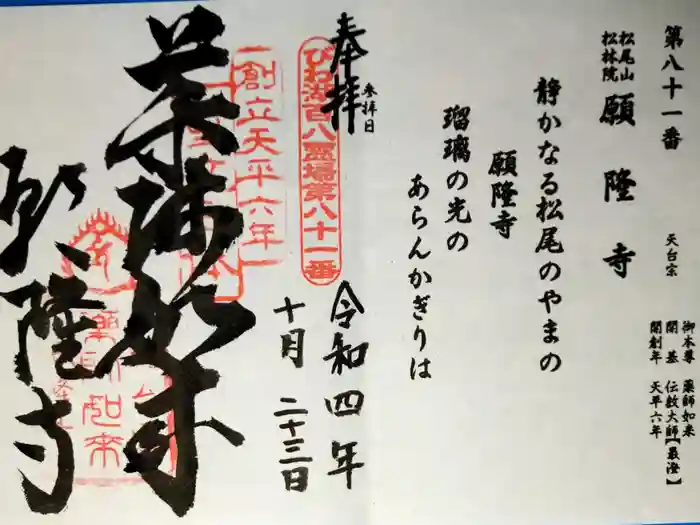 第八十一番
松尾山
松林院
願隆寺
天台宗
御本尊 薬師如来
開基 伝教大師【最澄】
開創年 天平六年
静かなる松尾のやまの
願隆寺
瑠璃の光の
あらんかぎりは
奉拝
参拝日
びわ湖百八霊場第八十一番
令和四年
十月二十三日
創立天平六年
薬師如来
薬師如来
願隆寺